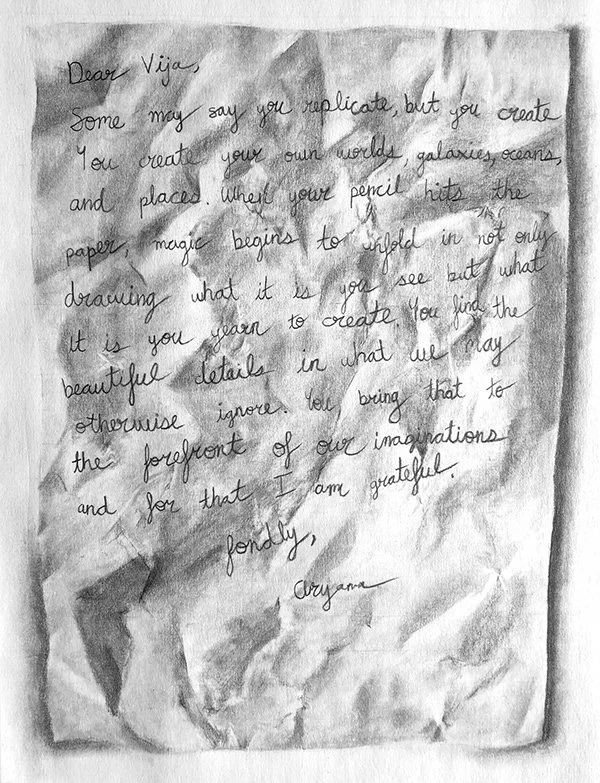 Dear Vija,
Some may say you replicate, but you create
You create your own worlds, galaxies, oceans,
and places. When your pencil hits the
paper, magic begins to unfold in not only
drawing what it is you see but what
it is you yearn to create. You find the
beautiful details in what we may
otherwise ignore. You bring that to
the forefront of our imaginations
and for that I am grateful.
fondly,
Aryana